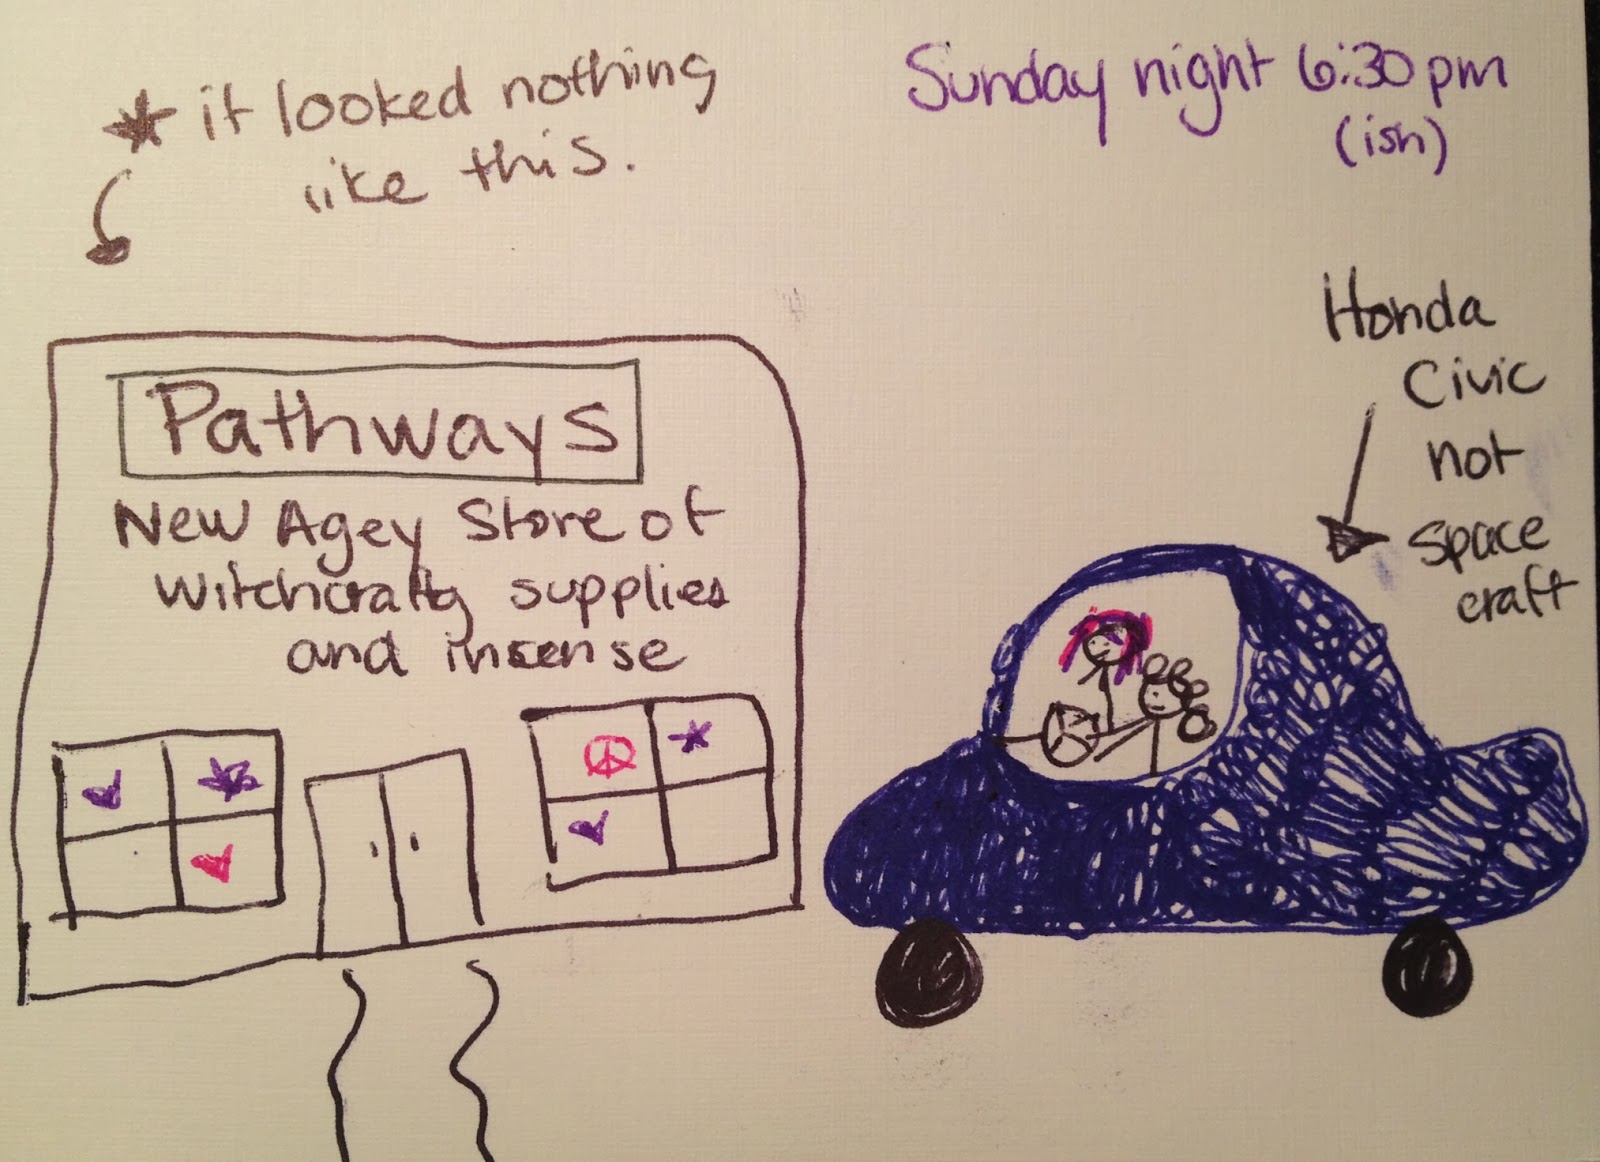 * it looked nothing
like this.
Sunday night 6:30pm
(ish)
Pathways
New Agey Store of
Witchcrafty supplies
and incense
Honda
Civic
not
space
craft